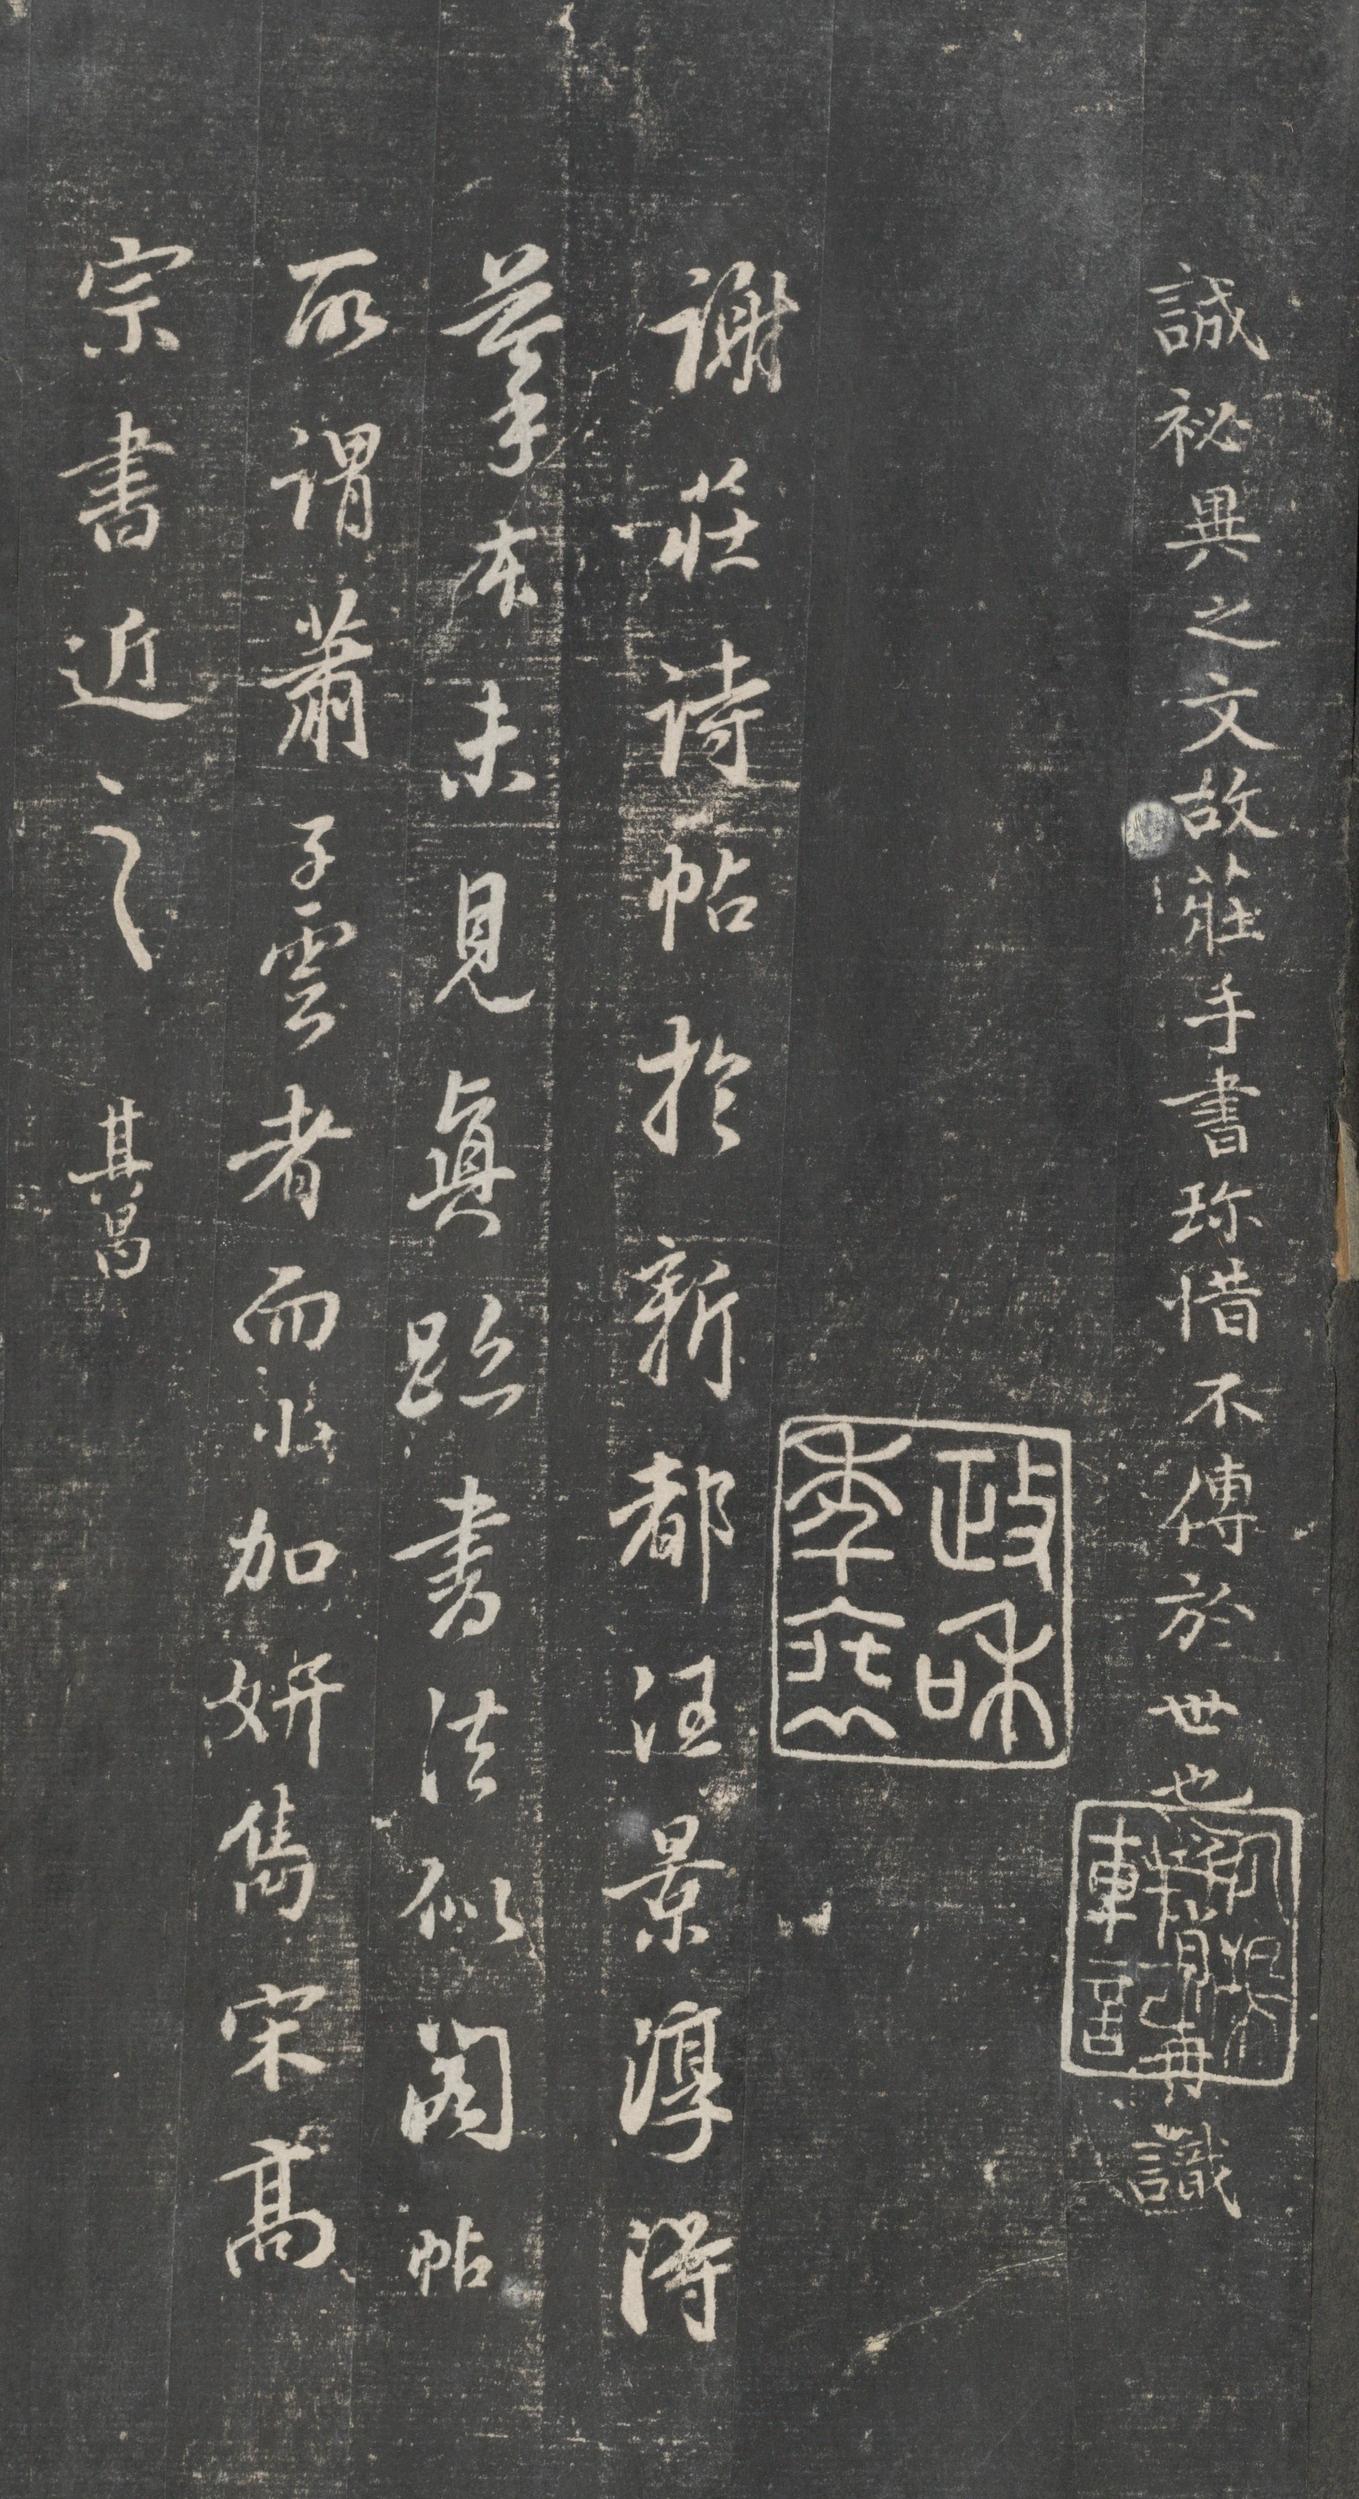 誠祕異之文故莊手書珎惜不傳於世也再識
政和
謝莊詩帖於新都汪景淳得
摹本未見眞跡書法似閣帖
所謂蕭子雲者而莊加妍雋宋高
宗書近之 其昌